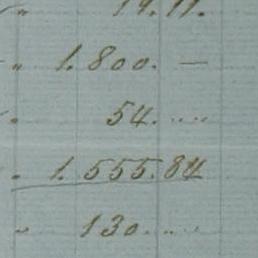 " 19.11.
" 1.800. —
" 54. ....
" 1.555.84
" 130. ....